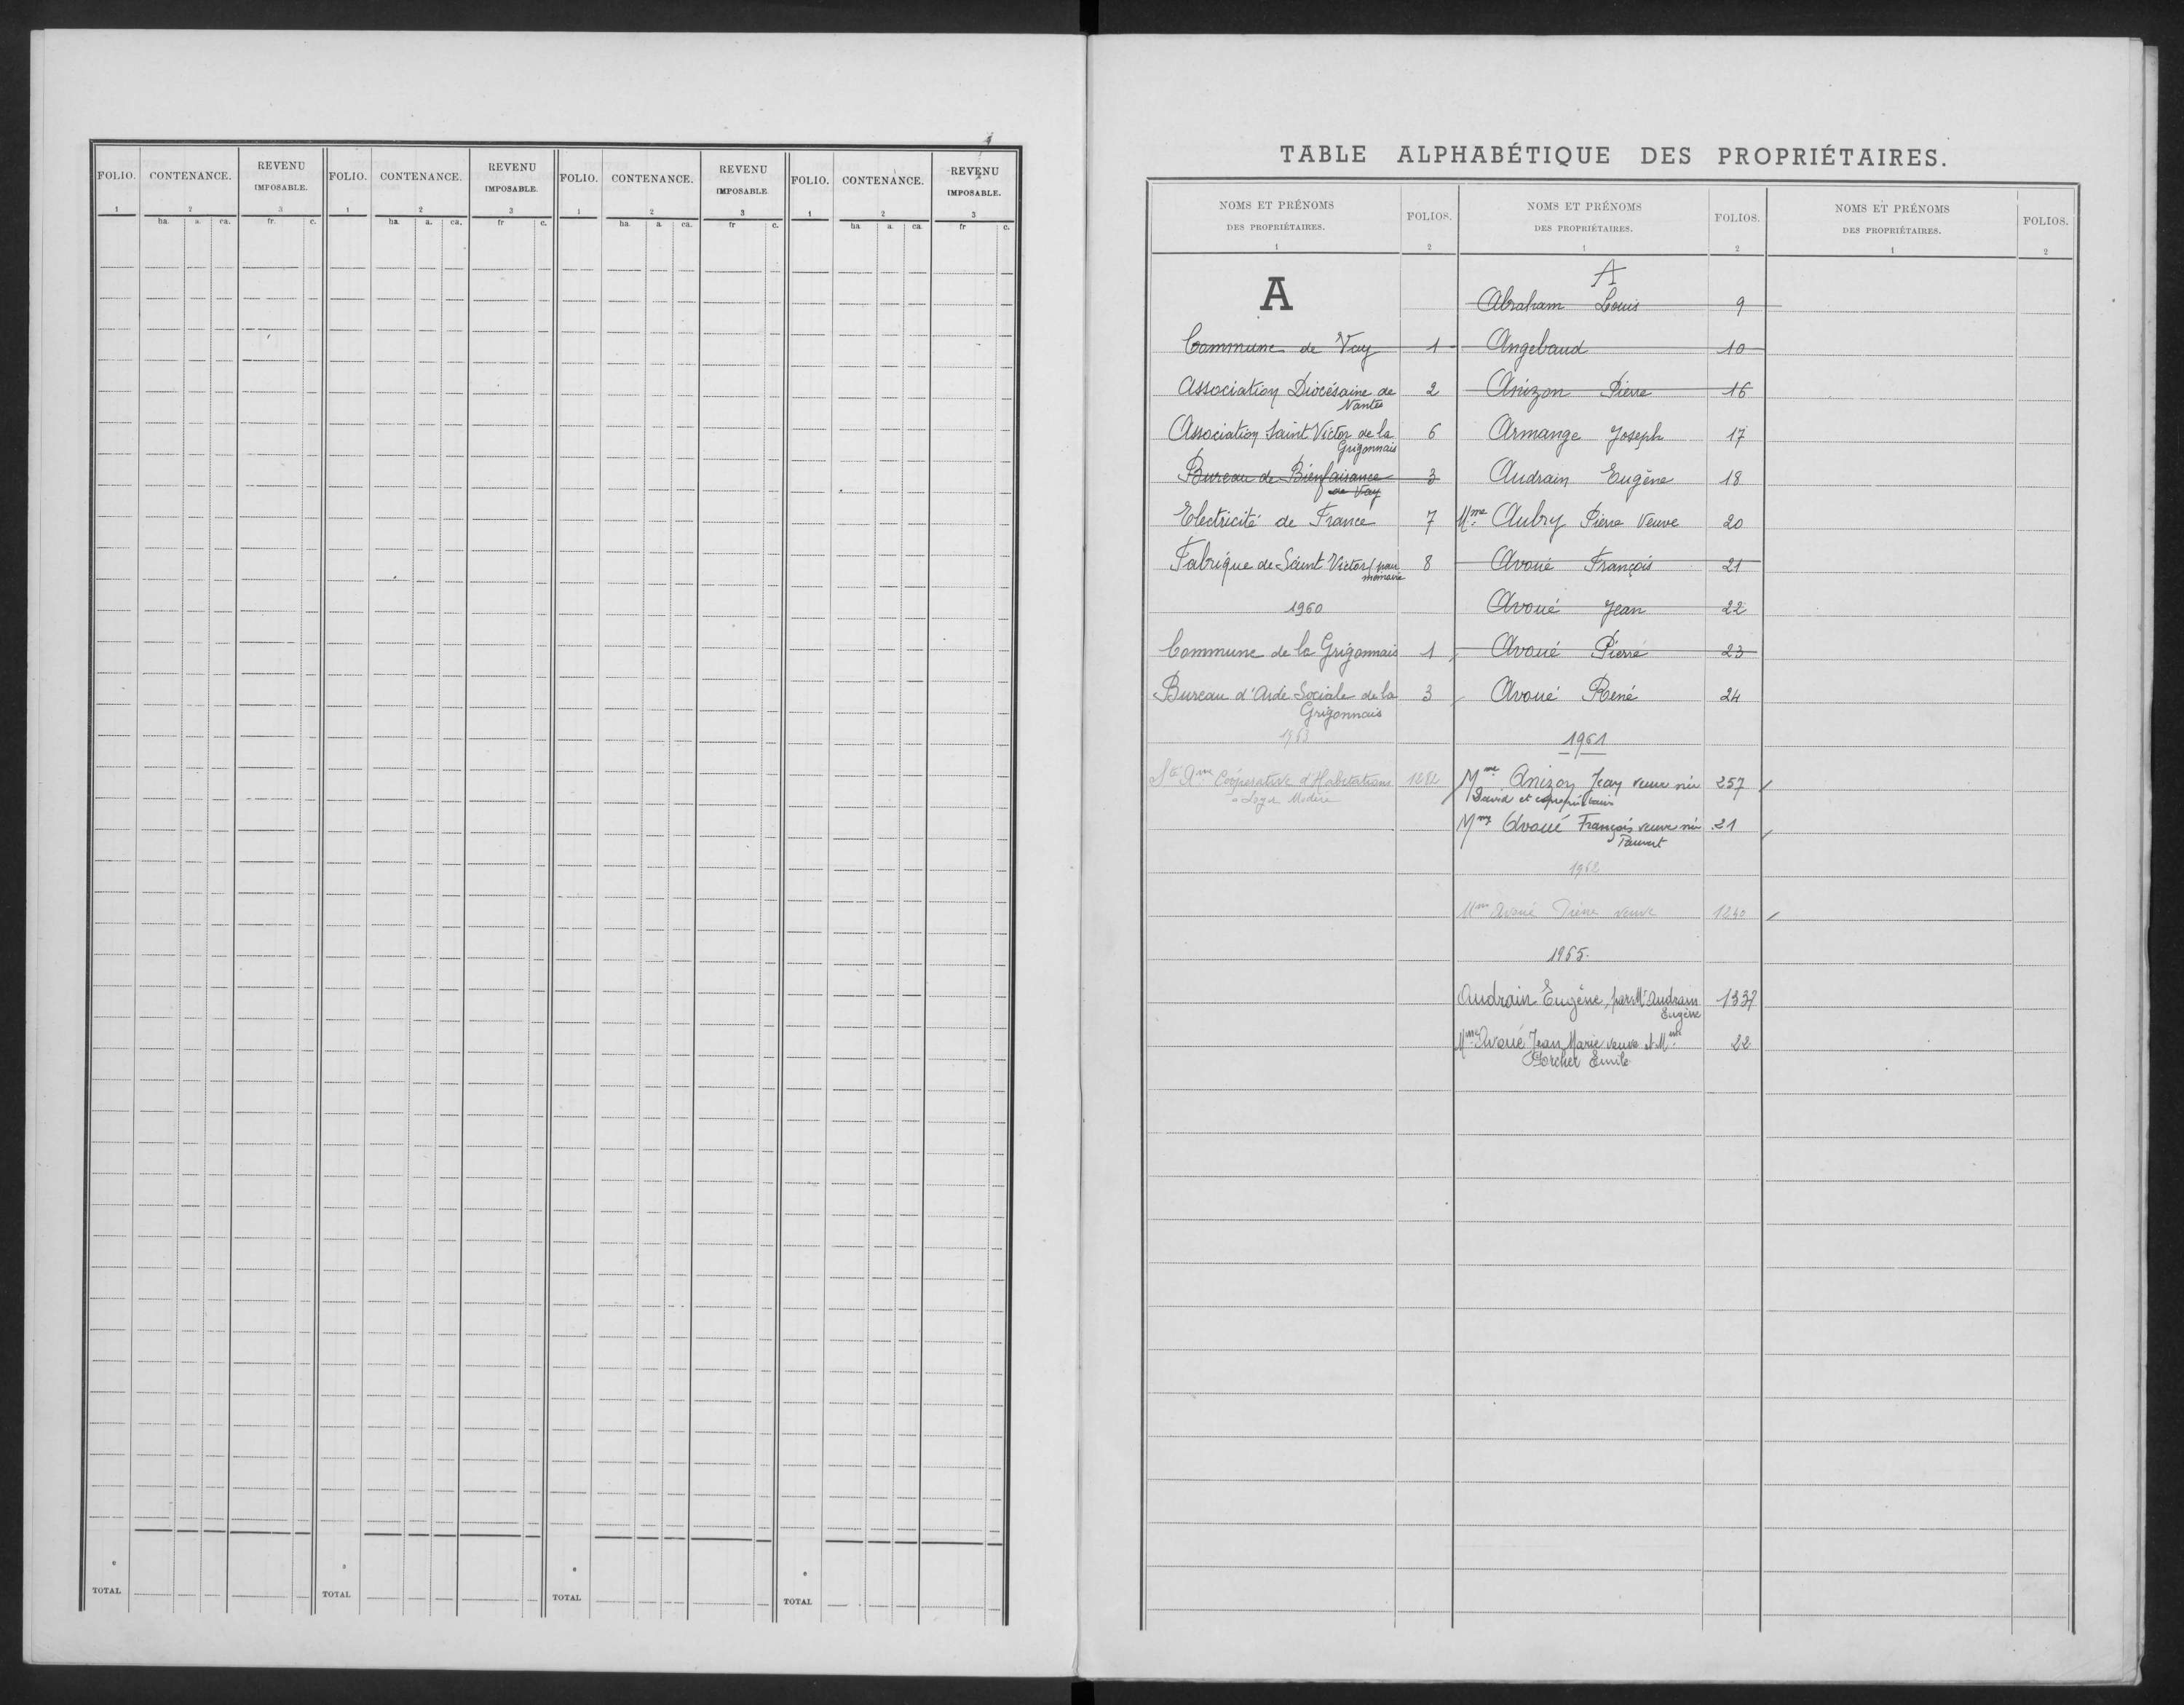 FOLIO. CONTENANCE. REVENU IMPOSABLE. FOLIO. CONTENANCE. REVENU IMPOSABLE. FOLIO. CONTENANCE. REVENU IMPOSABLE. FOLIO. CONTENANCE. REVENU IMPOSABLE.
1 2 3 1 2 3 1 2 3 1 2 3
ha. a. ca. fr. c. ha. a. ca. fr c. ha. a. ca. fr c. ha a. ca. fr c.
TOTAL TOTAL TOTAL TOTAL
TABLE ALPHABÉTIQUE DES PROPRIÉTAIRES.
NOMS ET PRÉNOMS
DES PROPRIÉTAIRES.
1
FOLIOS.
2
A
Commune de Vay 1
Association Diocésaine de
Nantes 2
Association Saint Victor de la
Grigonnais 6
Bureau de Bienfaisance
de Vay 3
Electricité de France 7
Fabrique de Saint Victor (pour
mémoire 8
1960
Commune de la Grigonnais 1
Bureau d'Aide Sociale de la
Grigonnais 3
1963
Sté Ame Coopérative d'Habitations
à Loyer Modéré 1282
NOMS ET PRÉNOMS
DES PROPRIÉTAIRES.
1
FOLIOS.
2
A
Abraham Louis 9
Angebaud 10
Anizon Pierre 16
Armange Joseph 17
Audrain Eugène 18
Mme Aubry Pierre Veuve 20
Avoué François 21
Avoué Jean 22
Avoué Pierre 23
Avoué René 24
1961
Mme Anizon Jean veuve née 257
David et copropriétaires
Mme Avoué François veuve née 21
1962
Mme Avoué Pierre veuve 1240
1965.
Audrain Eugène, par Mr Audrain 1337
Eugène
Mme Avoué Jean Marie veuve et Mme 22
Porcher Emile
NOMS ET PRÉNOMS
DES PROPRIÉTAIRES.
1
FOLIOS.
2